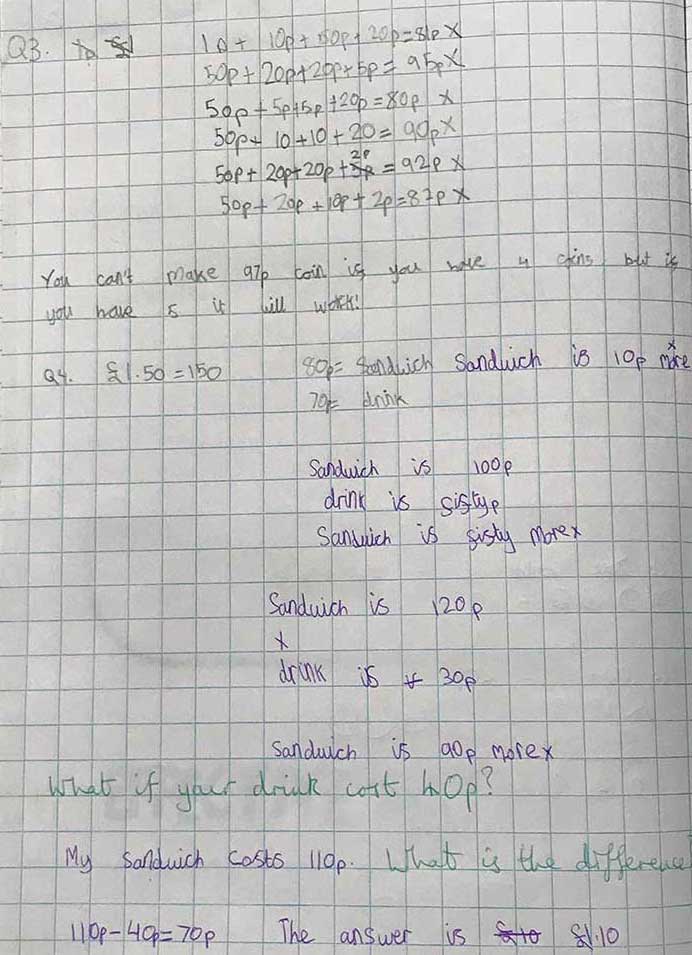 Q3. 10 + 10p + 50p + 20p = 81p X
50p + 20p + 20p + 5p = 95p X
50p + 5p + 5p + 20p = 80p X
50p + 10 + 10 + 20 = 90p X
50p + 20p + 20p + 2p = 92p X
50p + 20p + 10p + 2p = 82p X
You can't make 97p coin if you have 4 coins but if
you have 5 it will work!
Q4. £1.50 = 150 80p = Sandwich Sandwich is 10p more x
70p = drink
Sandwich is 100p
drink is sistyp
Sandwich is sisty more x
Sandwich is 120p
x
drink is 30p
Sandwich is 90p more x
What if your drink cost 40p?
My sandwich costs 110p. What is the difference
110p - 40p = 70p The answer is £10 £1.10